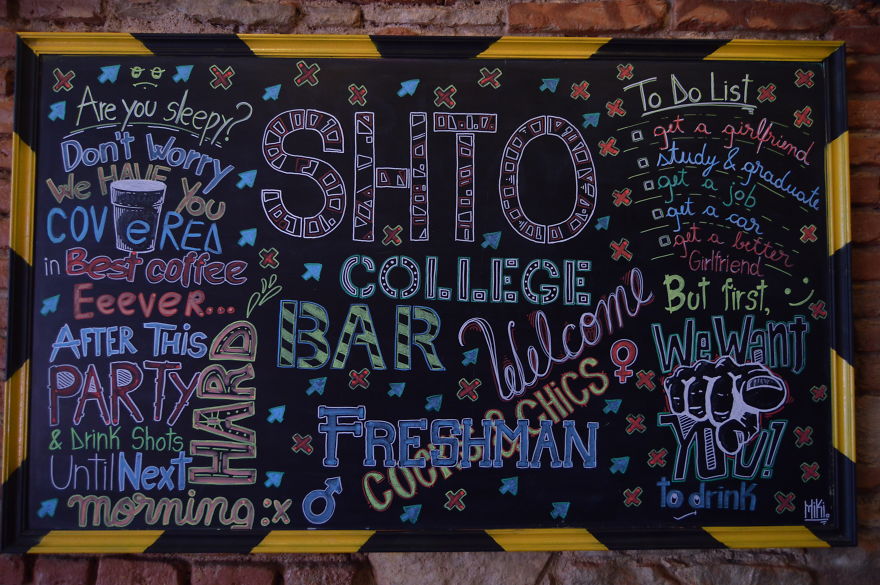 Are you sleepy?
Don't Worry
We HAVE You
COVeRED
in Best coffee
Eeever...
AFTER THIS
PARTY HARD
& DRINK SHOTS
Until Next
morning :x
SHTO
COLLEGE
BAR
Welcome
FRESHMAN
& CHICS
To Do List
get a girlfriend
study & graduate
get a job
get a car
get a better
Girlfriend
But first,
We Want
YOU!
to drink
Miki.